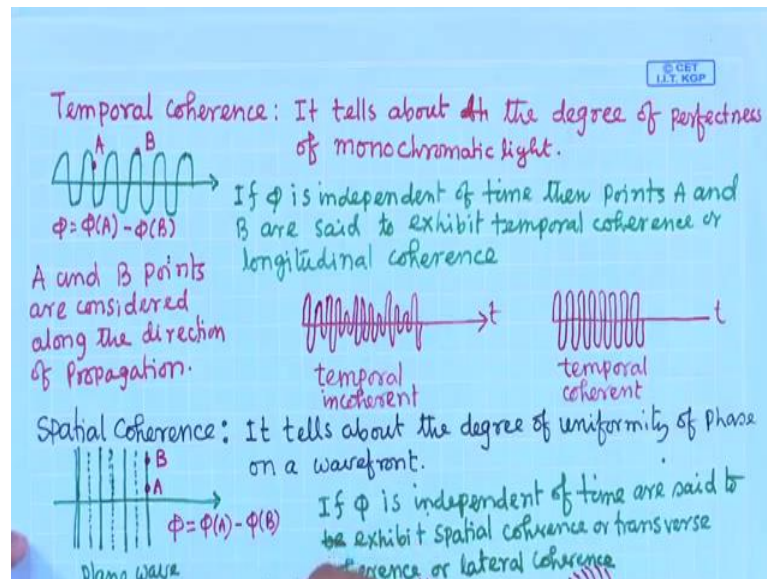 © CET
I.I.T. KGP
Temporal Coherence: It tells about th the degree of perfectness
of monochromatic light.
A B
Φ = Φ(A) - Φ(B)
If Φ is independent of time then points A and
B are said to exhibit temporal coherence or
longitudinal coherence
A and B points
are considered
along the direction
of Propagation.
t
temporal
incoherent
t
temporal
coherent
Spatial Coherence: It tells about the degree of uniformity of Phase
on a wavefront.
B
A
Φ = Φ(A) - Φ(B)
If Φ is independent of time are said to
be exhibit spatial coherence or transverse
or lateral coherence
plane wave